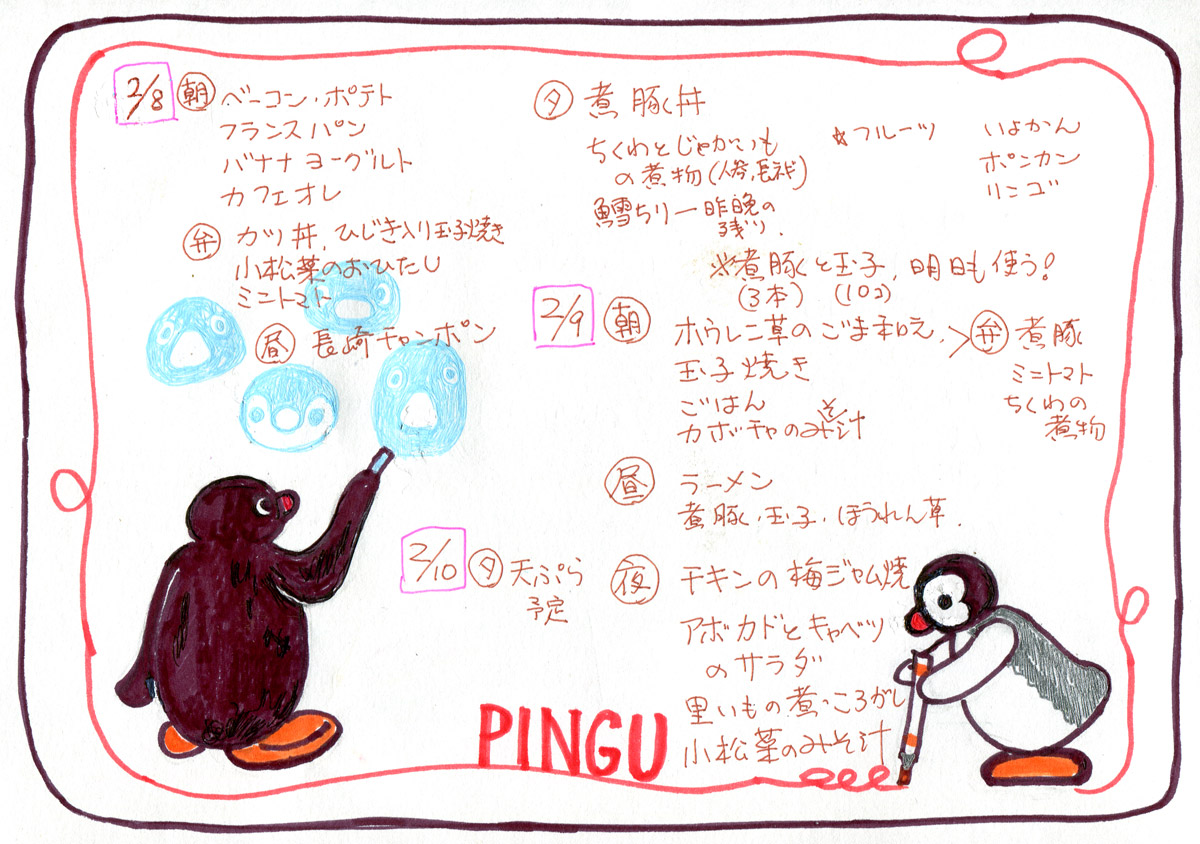 2/8 朝 ベーコン・ポテト
フランスパン
バナナヨーグルト
カフェオレ
弁 カツ丼, ひじき入り玉子焼き
小松菜のおひたし
ミニトマト
昼 長崎チャンポン
夕 煮豚丼
ちくわとじゃがいも
の煮物(人参,長ネギ)
鱈ちり一昨晩の
残り.
☆フルーツ
いよかん
ポンカン
リンゴ
※煮豚と玉子, 明日も使う!
(3本) (10コ)
2/9 朝 ホウレン草のごま和え,
玉子焼き
ごはん
カボチャのみそ汁
弁 煮豚
ミニトマト
ちくわの
煮物
昼 ラーメン
煮豚・玉子・ほうれん草.
夜 チキンの梅ジャム焼
アボカドとキャベツ
のサラダ
里いもの煮っころがし
小松菜のみそ汁
2/10 夕 天ぷら
予定
PINGU